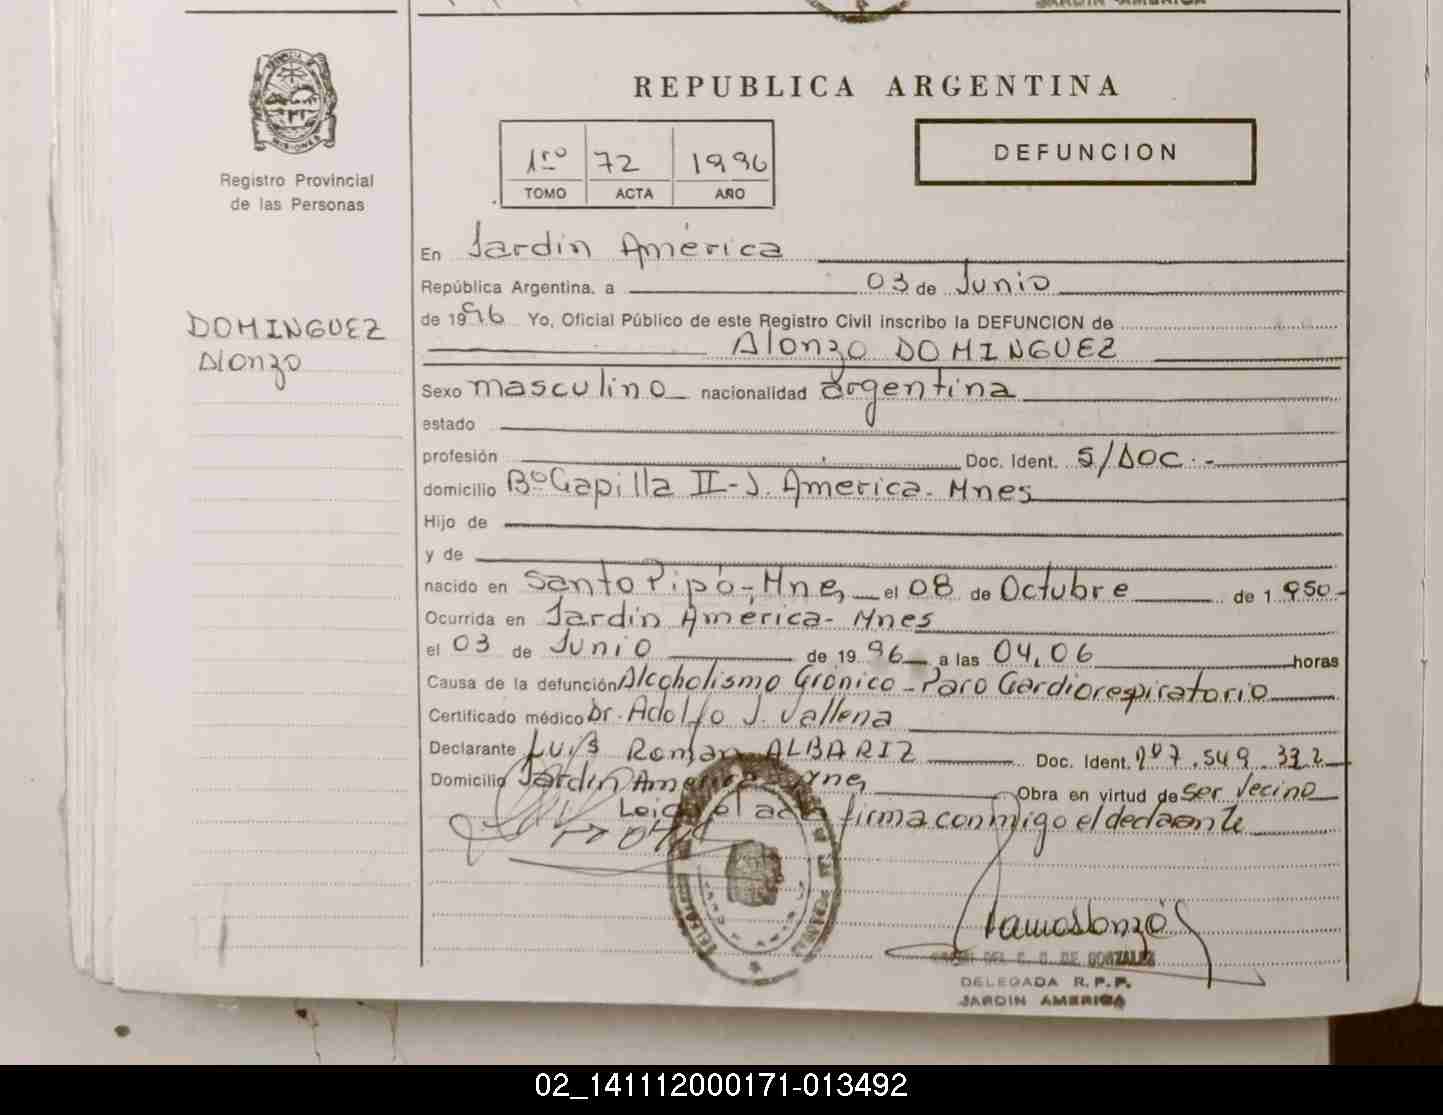 JARDIN AMERICA
REPUBLICA ARGENTINA
1ro 72 1996
TOMO ACTA AÑO
DEFUNCION
MISIONES
Registro Provincial
de las Personas
DOMINGUEZ
Alonzo
En Jardín América
República Argentina, a 03 de Junio
de 1996 Yo, Oficial Público de este Registro Civil inscribo la DEFUNCION de
Alonzo DOMINGUEZ
Sexo masculino nacionalidad argentina
estado
profesión Doc. Ident. S/Doc.-
domicilio Bº Capilla II-J. América-Mnes
Hijo de
y de
nacido en Santo Pipó-, Mnes el 08 de Octubre de 1.950-
Ocurrida en Jardín América- Mnes
el 03 de Junio de 1996 a las 04,06 horas
Causa de la defunción Alcoholismo Crónico-Paro Cardiorespiratorio
Certificado médico Dr. Adolfo J. Vallena
Declarante Luis Román ALBARIZ Doc. Ident.
Domicilio Jardín América Obra en virtud de ser vecino
firma conmigo el
DE GONZALEZ
DELEGADA R.P.P.
JARDIN AMERICA
02_141112000171-013492